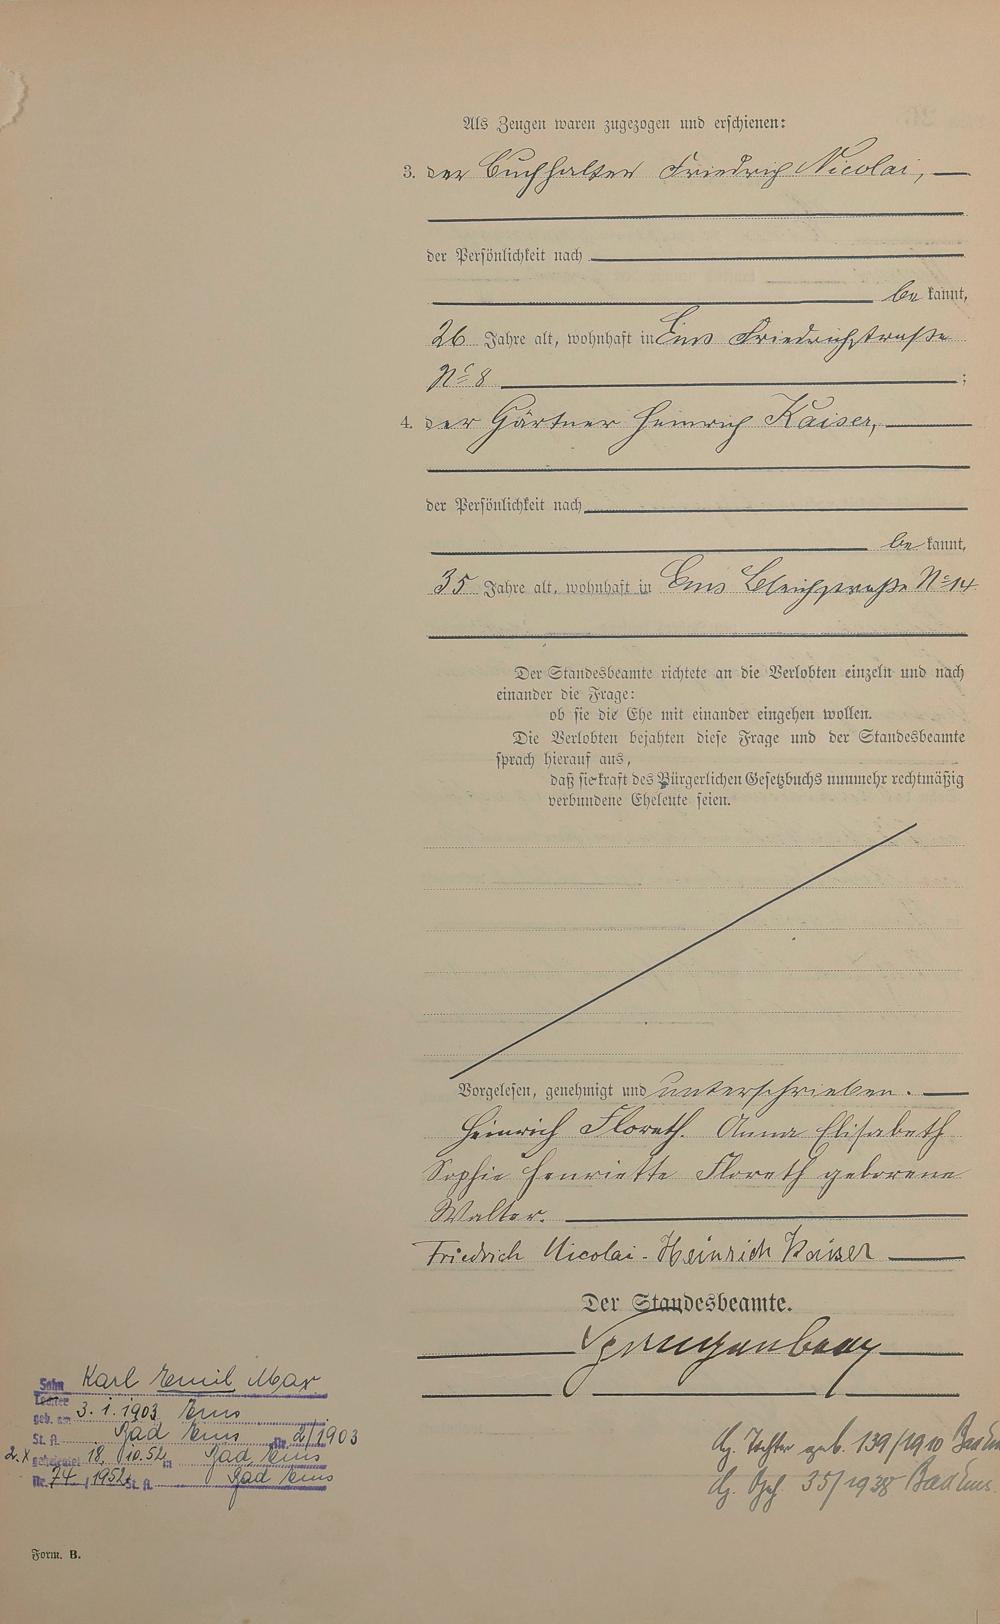 Als Zeugen waren zugezogen und erschienen:
3. der Buchhalter Friedrich Nicolai,
der Persönlichkeit nach
be kannt,
26 Jahre alt, wohnhaft in Ems Friedrichstraße
No 8 ;
4. der Gärtner Heinrich Kaiser,
der Persönlichkeit nach
be kannt,
35 Jahre alt, wohnhaft in Ems Bleichstraße No 14
Der Standesbeamte richtete an die Verlobten einzeln und nach
einander die Frage:
ob sie die Ehe mit einander eingehen wollen.
Die Verlobten bejahten diese Frage und der Standesbeamte
sprach hierauf aus,
daß sie kraft des Bürgerlichen Gesetzbuchs nunmehr rechtmäßig
verbundene Eheleute seien.
Vorgelesen, genehmigt und unterschrieben.
Heinrich Florath. Anna Elisabeth
Sophie Henriette Florath geborene
Walter.
Friedrich Nicolai - Heinrich Kaiser
Der Standesbeamte.
Sohn Karl Emil Max
Tochter
geb. am 3.1.1903 Ems
St. A. Bad Ems Nr. 2/1903
2.X geheiratet 18.10.52 in Bad Ems
Nr. 74 / 1952 St. A. Bad Ems
Tochter geb. 139/1910 Bad Ems
35/1938 Bad Ems.
Form. B.